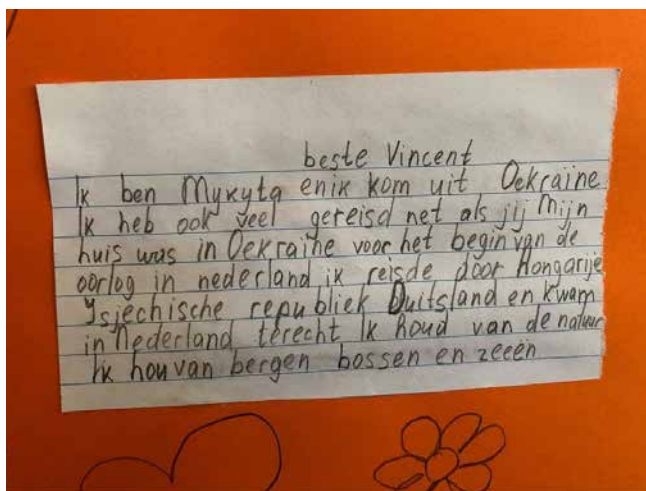 beste Vincent
Ik ben Mykyta enik kom uit Oekraine
Ik heb ook veel gereisd net als jij Mijn
huis was in Oekraine voor het begin van de
oorlog in nederland ik reisde door Hongarije
Tsjechische republiek Duitsland en kwam
in Nederland terecht Ik houd van de natuur
Ik hou van bergen bossen en zeeën